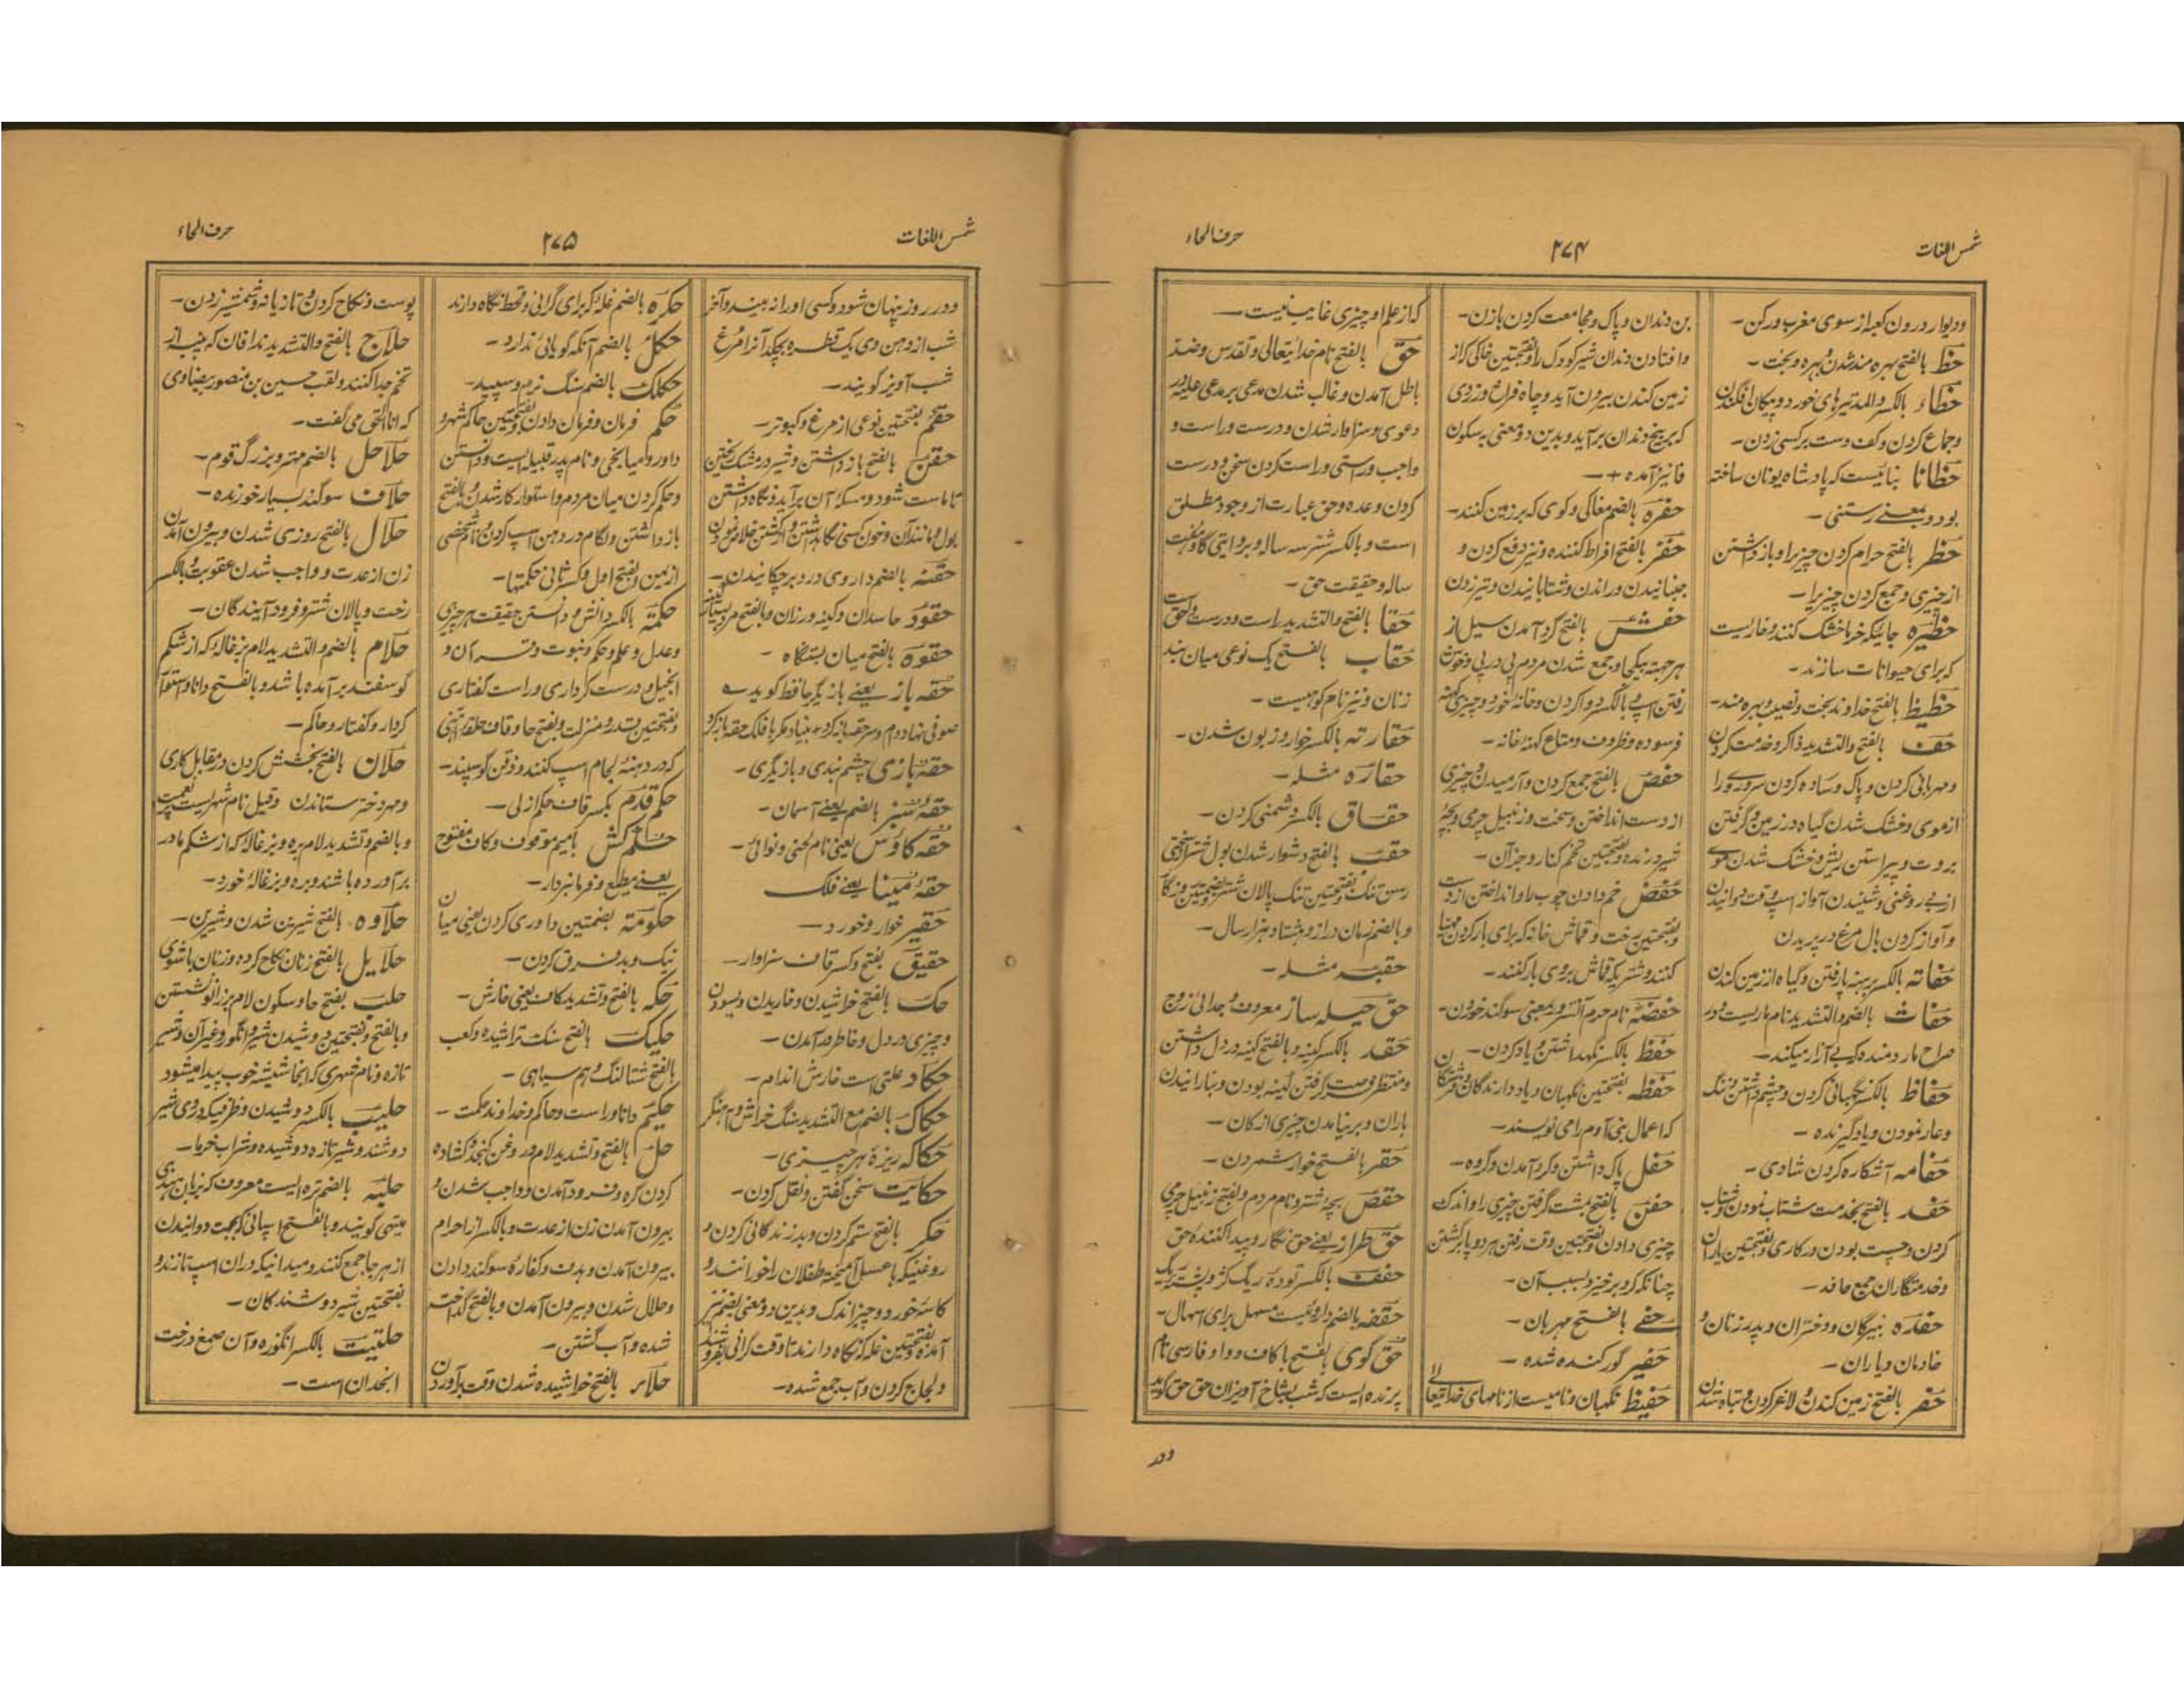 شمس اللغات
۲۷۴
حرف الحاء
ودیوار درون کعبه از سوی مغرب ورکن-
حظ بالفتح بهره مند شدن و بهره و بخت-
حظاء بالکسر والمد تیرهای خورد و پیکان افکندن
وجماع کردن وکف دست برکسی زدن-
حظانا بنائیست که پادشاه یونان ساخته
بود وبمعنے رستنی-
حظر بالفتح حرام کردن چیزیرا و بازداشتن
از چیزی وجمع کردن چیزیرا-
حظیره جائیکه خرما خشک کنند وخاربست
که برای حیوانات سازند-
حظیظ بالفتح خداوند بخت ونصیب وبهره مند-
حف بالفتح والتشدید ذاکر وخدمت کردن
ومهربانی کردن وپاک وساده کردن سر وروا
ازموی وخشک شدن گیاه در زمین وگرفتن
بروت وپیراستن ریش وخشک شدن موی
ازبے روغنی وشنیدن آواز اسپ وقت دوانیدن
وآواز کردن بال مرغ در پریدن
حفاته بالکسر برهنه پا رفتن وگیاه از زمین کندن
حفاث بالضم والتشدید نام ماریست ودر
صراح مار دمنده که بے آزار میکند-
حفاظ بالکسر نگهبانی کردن وچشم داشتن وننگ
وعار نمودن ویادگیرنده-
حفامه آشکاره کردن شادی-
حفد بالفتح بخدمت شتاب نمودن وشتاب
کردن وچست بودن در کاری وبفتحتین یاران
وخدمتگاران جمع حافد-
حفده نبیرگان ودختران وپدر زنان و
خادمان ویاران-
حفر بالفتح زمین کندن ولاغر کردن وتباه شدن
بن دندان وپاک ومجامعت کردن بازن-
وافتادن دندان شیر کودک را وبفتحتین خاکی که از
زمین کندن بیرون آید وچاه فراخ وزردی
که بر بیخ دندان برآید وبدین دو معنی بسکون
فا نیز آمده-
حفره بالضم مغاکی وکوی که بر زمین کنند-
حفز بالفتح افراط کننده ونیز دفع کردن و
جنبانیدن وراندن وشتابانیدن وتیز زدن
حفش بالفتح گرد آمدن سیل از
هر جهة بیکجا وجمع شدن مردم پی در پی وخوش
رفتن اسپ وبالکسر دوا کردن وخانه خورد وچیزی کهنه
فرسوده وظروف ومتاع کهنه خانه-
حفص بالفتح جمع کردن وآرمیدن وچیزی
از دست انداختن وسخت وزنبیل چرمی وبچه
شیر درنده وبفتحتین تخم کنار وجز آن-
حفض خم دادن چوب را وانداختن از دست
وبفتحتین رخت وقماش خانه که برای بار کردن مهیا
کنند وشتریکه قماش بروی بار کنند-
حفضه نام حرم آنسرور وبمعنی سوگند خوردن-
حفظ بالکسر نگهداشتن ویاد کردن-
حفظه بفتحتین نگهبان ویاد دارندگان وفرشتگان
که اعمال بنی آدم را می نویسند-
حفل پاک داشتن وگرد آمدن وگروه-
حفن بالفتح بمشت گرفتن چیزی را واندک
چیزی دادن وبفتحتین وقت رفتن هر دو پا برگشتن
چنانکه گرد برخیزد بسبب آن-
حفے بالفتح مهربان-
حفیر گور کنده شده-
حفیظ نگهبان ونامیست از نامهای خدایتعالی
که از علم او چیزی غایب نیست-
حق بالفتح نام خدایتعالی وتقدس وضد
باطل آمدن وغالب شدن مدعی بر مدعی علیه در
دعوی وسزاوار شدن ودرست وراست و
واجب وراستی وراست کردن سخن ودرست
کردن وعده وحق عبارت از وجود مطلق
است وبالکسر شتر سه ساله وبروایتی گاو هشت
ساله وحقیقت حق-
حقا بالفتح والتشدید راست ودرست وبحق است
حقاب بالفتح یک نوعی میان بند
زنان ونیز نام کوهیست-
حقارته بالکسر خوار وزبون شدن-
حقاره مثله-
حقاق بالکسر دشمنی کردن-
حقب بالفتح دشوار شدن بول شتر از سختی
رسن تنگ وبفتحتین تنگ پالان شتر وبضمتین روزگار
وبالضم زمان دراز وهشتاد وهزار سال-
حقبه مثله-
حق حیله ساز معروف وجدائی زوج
حقد بالکسر کینه وبالفتح کینه در دل داشتن
ومنتظر فرصت گرفتن کینه بودن وبنا رانیدن
باران وبر نیامدن چیزی از کان-
حقر بالفتح خوار شمردن-
حقص بچه شتر ونام مردم وبفتح زنبیل چرمی
حق طراز یعنے حق نگار وپیدا کننده حق
حقف بالکسر توده ریگ کژ وپشته ریگ
حقفه بالضم داروئیست مسهل برای اسهال-
حق گوی بفتح با کاف وواو فارسی نام
پرنده ایست که شب بشاخ آویزان حق حق گوید
ودر
شمس اللغات
۲۷۵
حرف الحاء
ودر روز پنهان شود وکسی او را نه بیند وآخر
شب از دهن وی یک قطره بچکد آنرا مرغ
شب آویز گویند-
حقم بفتحتین نوعی از مرغ وکبوتر-
حقن بالفتح بازداشتن وشیر در مشک ریختن
تا ماست شود ومسکه آن برآید ونگاه داشتن
بول ومانند آن وخون کسی نگاهداشتن واز کشتن خلاص نمودن
حقنه بالضم داروی در دبر چکانیدن-
حقود حاسدان وکینه ورزان وبالفتح مرد بسیار کینه
حقوه بالفتح میان بستنگاه-
حقه باز یعنے بازیگر حافظ گوید
صوفی نهاد دام وسر حقه باز کرد بنیاد مکر با فلک حقه باز کرد
حقه بازی چشم بندی وبازیگری-
حقه سبز بالضم یعنے آسمان-
حقه کاوس یعنی نام لحنی ونوائی-
حقه مینا یعنے فلک
حقیر خوار وخورد-
حقیق بفتح وکسر قاف سزاوار-
حک بالفتح خراشیدن وخاریدن وبسودن
وچیزی در دل وخاطر در آمدن-
حکاد علتی است خارش اندام-
حکاک بالضم مع التشدید سنگ خراش وآهنگر
حکاکه ریزه هر چیزی-
حکایت سخن گفتن ونقل کردن-
حکر بالفتح ستم کردن وبد زندگانی کردن و
روغنیکه با عسل آمیخته طفلان را خورانند و
کاسه خورد وچیز اندک وبدین دو معنی بضم نیز
آمده وبفتحتین غله که نگاه دارند تا وقت گرانی بفروشند
ولجاج کردن وآب جمع شده-
حکره بالضم غله که برای گرانی وقحط نگاه دارند
حکل بالضم آنکه گویائی ندارد-
حکلک بالضم سنگ نرم وسپید-
حکم فرمان وفرمان دادن وبفتحتین حاکم شهر و
داور ومیانجی ونام پدر قبیله ایست ودانستن
وحکم کردن میان مردم واستوار کار شدن وبالفتح
بازداشتن ولگام در دهن اسپ کردن ونام شخصی
از یمن وبفتح اول وکسر ثانی حکمتها-
حکمة بالکسر دانش ودانستن حقیقت هر چیزی
وعدل وعلم وحکم ونبوت وقرآن و
انجیل ودرست کرداری وراست گفتاری
وبفتحتین قدر ومنزلت وبفتح حا وقاف حلقه آهنی
که در دهنه لجام اسپ کنند وذقن گوسپند-
حکم قدم بکسر قاف حکم ازلی-
حکم کش بامیم موقوف وکاف مفتوح
یعنے مطیع وفرمانبردار-
حکومة بضمتین داوری کردن یعنی میان
نیک وبد فرق کردن-
حکه بالفتح وتشدید کاف یعنی خارش-
حکیک بالفتح سنگ تراشیده وکعب
بالفتح شتالنگ وهم سیاهی-
حکیم دانا وراست وحاکم وخداوند حکمت-
حل بالفتح وتشدید لام در روغن کنجد وکشاده
کردن گره وفرود آمدن وواجب شدن و
بیرون آمدن زن از عدت وبالکسر از احرام
بیرون آمدن وهدف وکفاره سوگند دادن
وحلال شدن وبیرون آمدن وبالفتح گداخته
شده وآب گشتن-
حلاء بالفتح خراشیده شدن وقت برآوردن
پوست ونکاح کردن وتازیانه وشمشیر زدن-
حلاج بالفتح والتشدید نداف آن که پنبه از
تخم جدا کنند ولقب حسین بن منصور بیضاوی
که انا الحق می گفت-
حلاحل بالضم مهتر وبزرگ قوم-
حلاف سوگند بسیار خورنده-
حلال بالفتح روزی شدن وبیرون آمدن
زن از عدت وواجب شدن عقوبت وبالکسر
رخت وپالان شتر وفرود آیندگان-
حلام بالضم والتشدید لام بزغاله که از شکم
گوسفند برآمده باشد وبالفتح دانا واستوار
کردار وگفتار وحاکم-
حلان بالفتح بخشش کردن در مقابل کاری
ومهر دختر ستاندن وقیل نام شهریست پر نعمت
وبالضم وتشدید لام بره وبزغاله که از شکم مادر
برآورده باشند وبره وبزغاله خورد-
حلاوه بالفتح شیرین شدن وشیرین-
حلایل بالفتح زنان نکاح کرده وزنان باشوی
حلب بفتح حا وسکون لام بر زانو نشستن
وبالفتح وبفتحتین دوشیدن شیر وانگور وغیر آن وشیر
تازه ونام شهری که آنجا شیشه خوب پیدا میشود
حلیب بالکسر دوشیدن وظرفیکه دروی شیر
دوشند وشیر تازه دوشیده وشراب خرما-
حلبه بالضم تره ایست معروف که بزبان هندی
میتهی گویند وبالفتح اسپانی که بجهت دوانیدن
از هر جا جمع کنند ومیدانیکه در آن اسپ تازند و
بفتحتین شیر دوشندگان-
حلتیت بالکسر انگوزه وآن صمغ درخت
انجدان است-